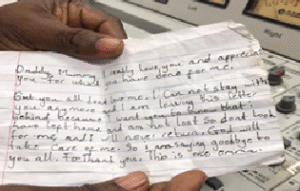 Daddy Mummy I really love you and appreciate
you. For what you have done for me.
But you all lost me. I can not stay with
you anymore. I am leaving this letter
behind because I want you to that's
have left home. I am not lost so dont look
for me and I will never return. God will
take care of me. So I am saying goodbye to
you all. For thank you. This is me
Right